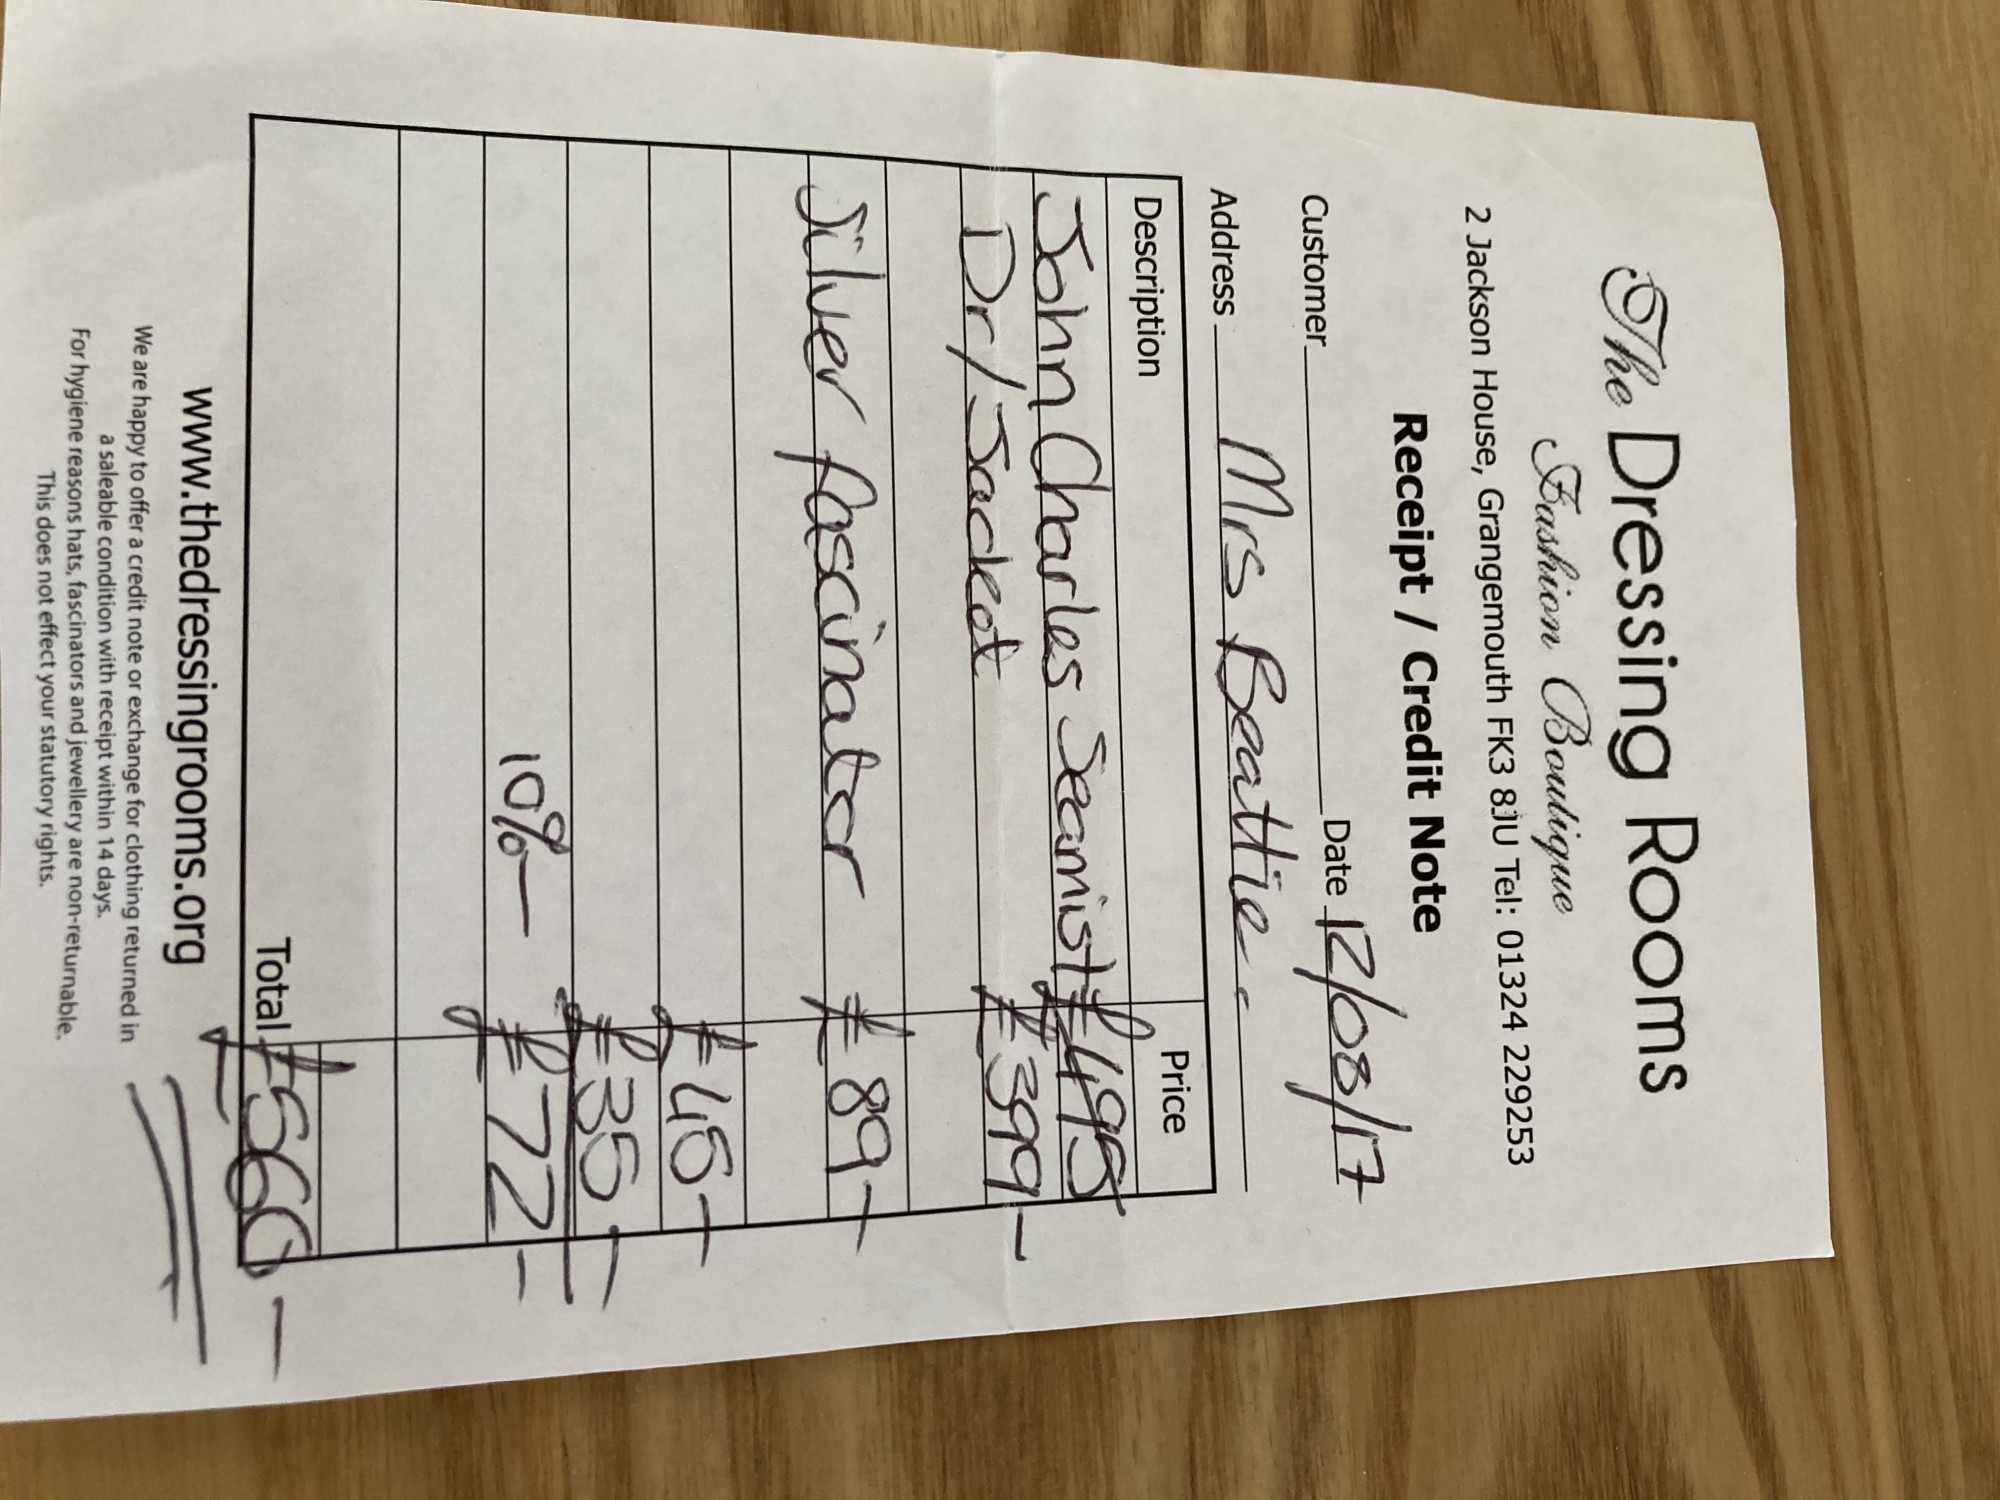 The Dressing Rooms
Fashion Boutique
2 Jackson House, Grangemouth FK3 8JU Tel: 01324 229253
Receipt / Credit Note
Customer Date 12/08/17
Address Mrs Beattie.
Description Price
John Charles Seamist £495
Dr/Jacket £399-
Silver fascinator £89-
£45-
£35-
10%- £72-
Total £560-
www.thedressingrooms.org
We are happy to offer a credit note or exchange for clothing returned in
a saleable condition with receipt within 14 days.
For hygiene reasons hats, fascinators and jewellery are non-returnable.
This does not effect your statutory rights.